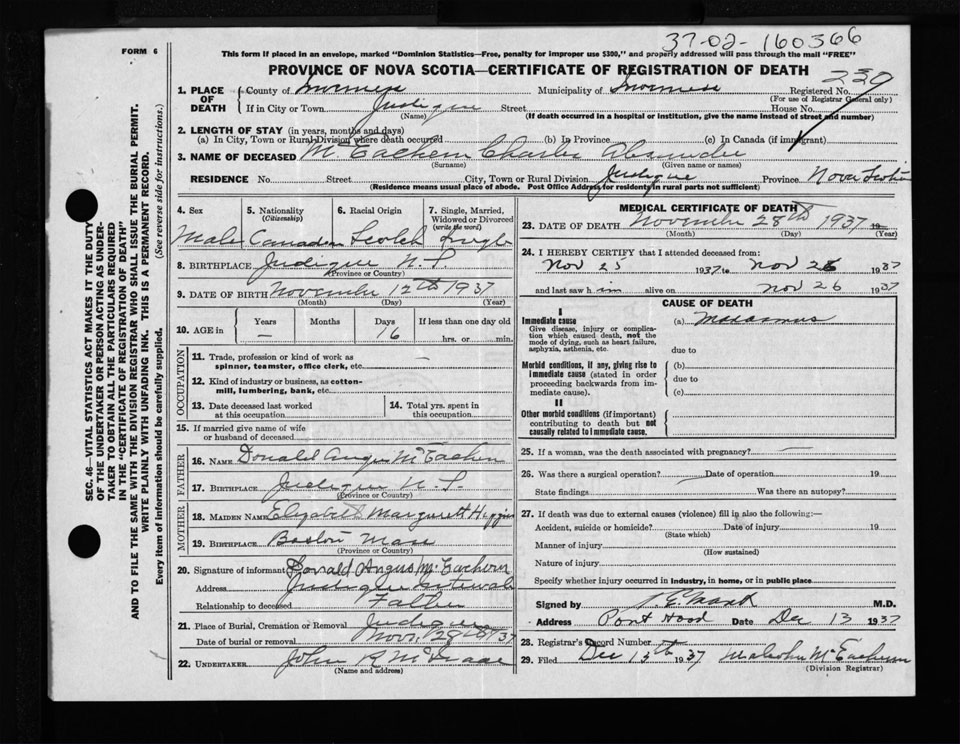 37-02-160366
FORM 6
This form if placed in an envelope, marked "Dominion Statistics—Free, penalty for improper use $300," and properly addressed will pass through the mail "FREE"
PROVINCE OF NOVA SCOTIA—CERTIFICATE OF REGISTRATION OF DEATH
1. PLACE OF DEATH
County of Inverness Municipality of Inverness Registered No. 230
(For use of Registrar General only)
If in City or Town Judique Street House No.
(Name) (If death occurred in a hospital or institution, give the name instead of street and number)
2. LENGTH OF STAY (in years, months and days)
(a) In City, Town or Rural Division where death occurred (b) In Province (c) In Canada (if immigrant)
3. NAME OF DECEASED McEachern Charles Alexander
(Surname) (Given name or names)
RESIDENCE No. Street City, Town or Rural Division Judique Province Nova Scotia
(Residence means usual place of abode. Post Office Address for residents in rural parts not sufficient)
4. Sex 5. Nationality (Citizenship) 6. Racial Origin 7. Single, Married, Widowed or Divorced (write the word)
Male Canadian Scotch Single
8. BIRTHPLACE Judique N.S.
(Province or Country)
9. DATE OF BIRTH November 12th 1937
(Month) (Day) (Year)
10. AGE in Years Months Days If less than one day old
— 16 hrs. or min.
OCCUPATION
11. Trade, profession or kind of work as spinner, teamster, office clerk, etc. —
12. Kind of industry or business, as cotton-mill, lumbering, bank, etc.
13. Date deceased last worked at this occupation
14. Total yrs. spent in this occupation
15. If married give name of wife or husband of deceased
FATHER
16. NAME Donald Angus McEachern
17. BIRTHPLACE Judique N.S.
(Province or Country)
MOTHER
18. MAIDEN NAME Elizabeth Margarett Higgins
19. BIRTHPLACE Boston Mass
(Province or Country)
20. Signature of informant Donald Angus McEachern
Address Judique Intervale
Relationship to deceased Father
21. Place of Burial, Cremation or Removal Judique
Date of burial or removal Nov. 28th 1937
22. UNDERTAKER John R
(Name and address)
MEDICAL CERTIFICATE OF DEATH
23. DATE OF DEATH November 28th 1937 19
(Month) (Day) (Year)
24. I HEREBY CERTIFY that I attended deceased from:
Nov 25 1937 to Nov 26 1937
and last saw h im alive on Nov 26 1937
CAUSE OF DEATH
I
Immediate cause (a) Marasmus
Give disease, injury or complication which caused death, not the mode of dying, such as heart failure, asphyxia, asthenia, etc.
due to
Morbid conditions, if any, giving rise to immediate cause (stated in order proceeding backwards from immediate cause).
(b)
due to
(c)
II
Other morbid conditions (if important) contributing to death but not causally related to immediate cause.
25. If a woman, was the death associated with pregnancy? —
26. Was there a surgical operation? Date of operation 19
State findings Was there an autopsy?
27. If death was due to external causes (violence) fill in also the following:—
Accident, suicide or homicide? Date of injury 19
(State which)
Manner of injury
(How sustained)
Nature of injury
Specify whether injury occurred in industry, in home, or in public place
Signed by M.D.
Address Port Hood Date Dec 13 1937
28. Registrar's Record Number
29. Filed Dec 13th 1937 Malcolm McEachern
(Division Registrar)
SEC. 46—VITAL STATISTICS ACT MAKES IT THE DUTY
OF THE UNDERTAKER OR PERSON ACTING AS UNDER-
TAKER TO OBTAIN ALL THE PARTICULARS REQUIRED
IN THE "CERTIFICATE OF REGISTRATION OF DEATH"
AND TO FILE THE SAME WITH THE DIVISION REGISTRAR WHO SHALL ISSUE THE BURIAL PERMIT.
WRITE PLAINLY WITH UNFADING INK. THIS IS A PERMANENT RECORD.
Every item of information should be carefully supplied. (See reverse side for instructions.)